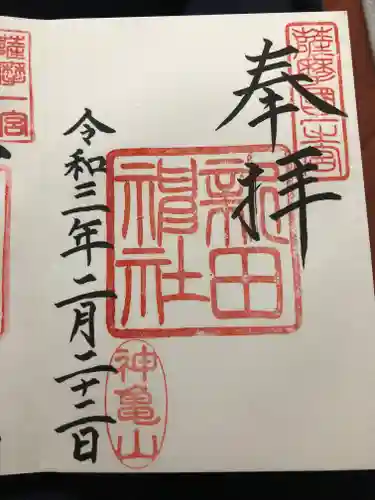 奉拝
薩摩國一之宮
新田神社
神亀山
令和三年二月二十二日
薩摩一宮